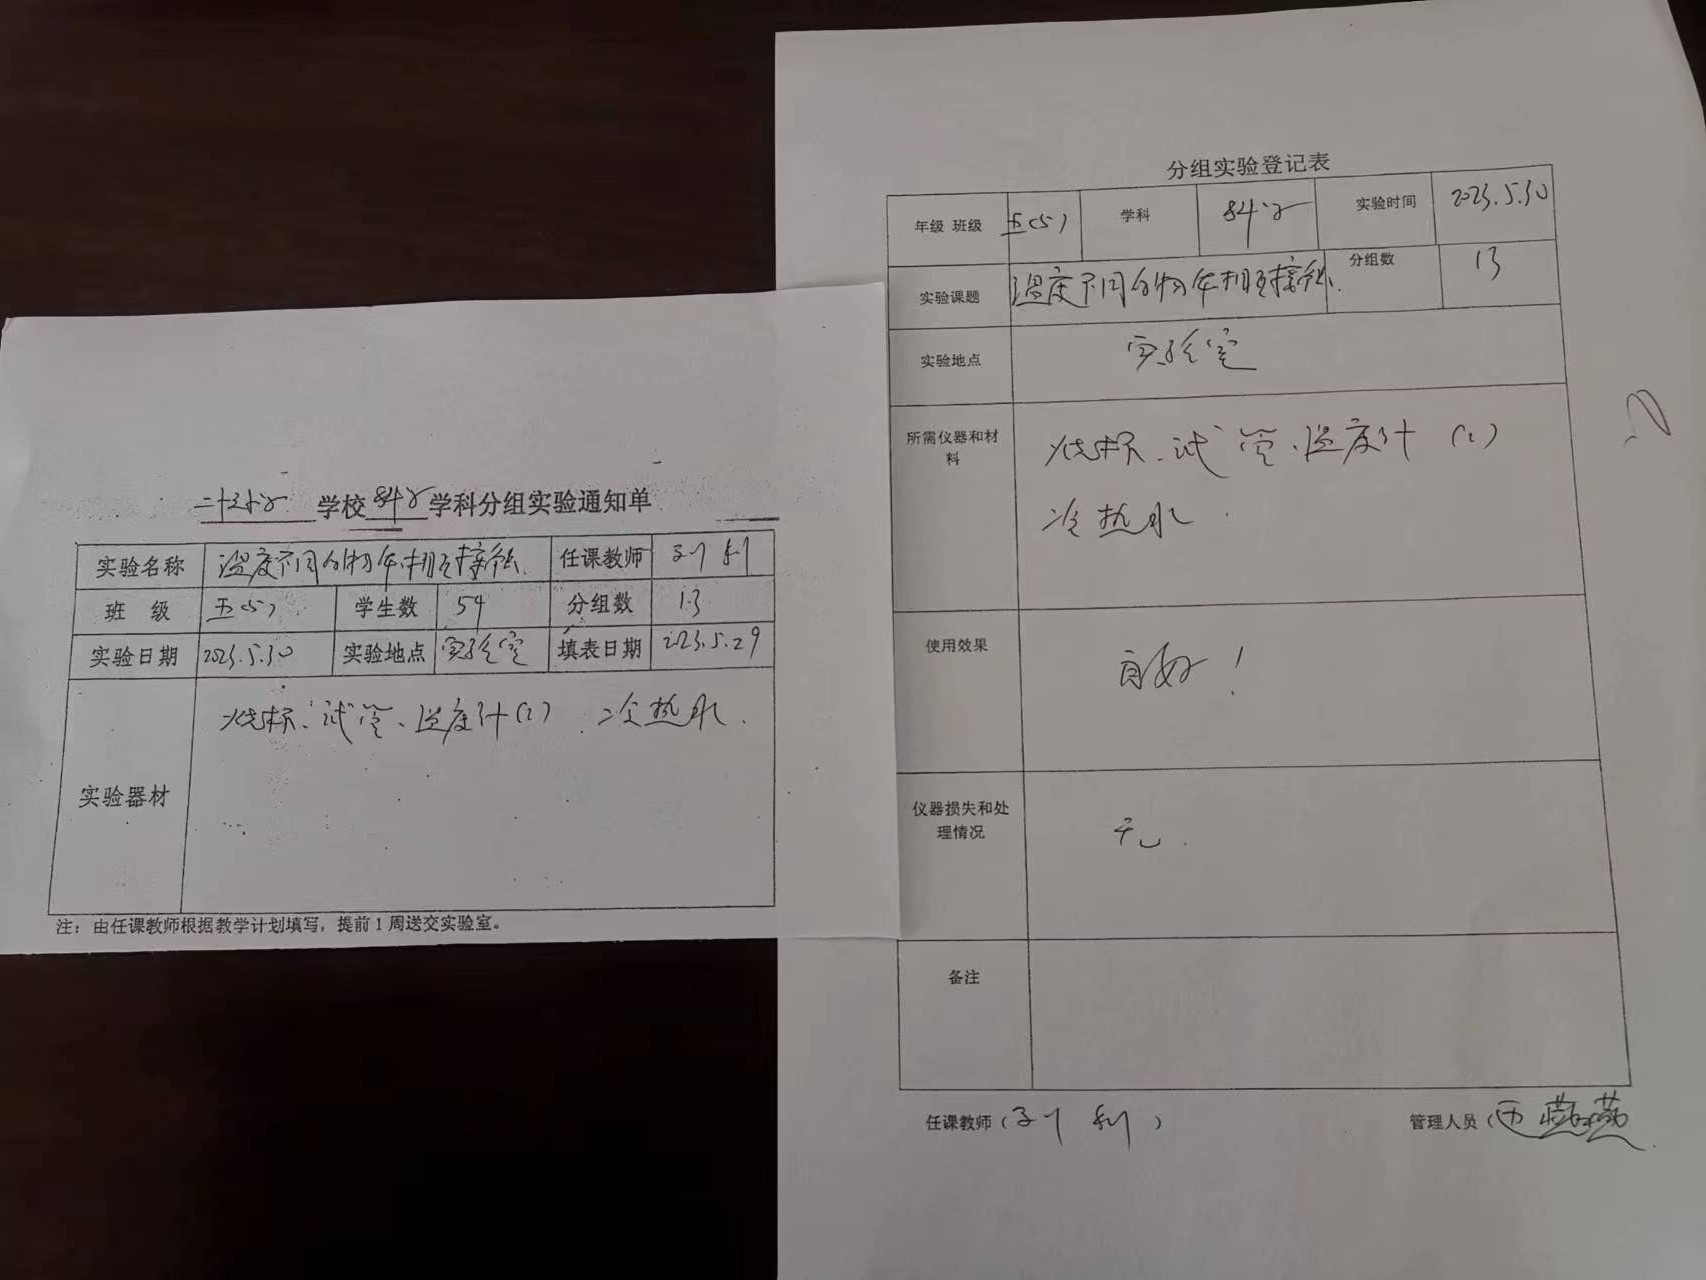 学校 科学 学科分组实验通知单
实验名称 温度不同的物体相互接触 任课教师 刘利
班 级 五(5) 学生数 54 分组数 13
实验日期 2023.5.30 实验地点 实验室 填表日期 2023.5.29
实验器材 烧杯、试管、温度计(2) 冷热水.
注：由任课教师根据教学计划填写，提前1周送交实验室。
分组实验登记表
年级 班级 五(5) 学科 科学 实验时间 2023.5.30
实验课题 温度不同的物体相互接触. 分组数 13
实验地点 实验室
所需仪器和材料 烧杯、试管、温度计 (2)
冷热水.
使用效果 良好!
仪器损失和处理情况 无.
备注
任课教师(刘利) 管理人员(